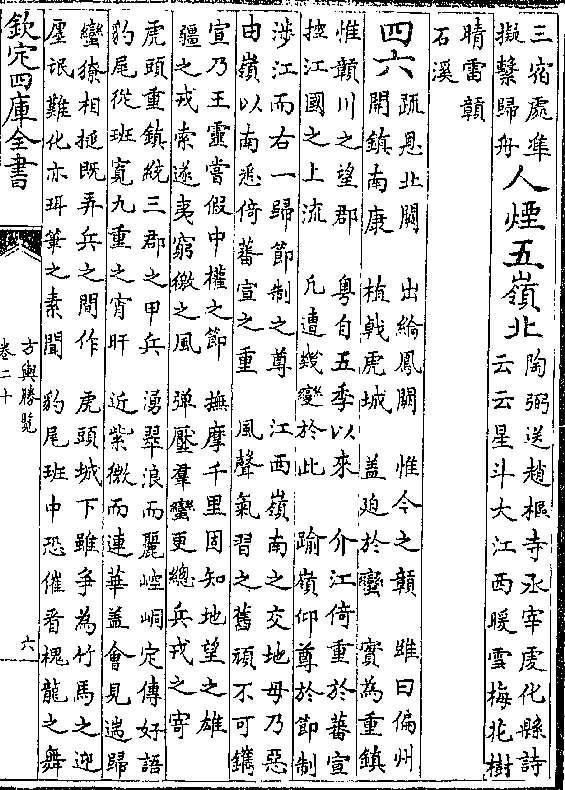 三宿處準
擬繫歸舟
人煙五嶺北
陶弼送趙樞寺丞宰虔化縣詩
云云星斗大江西暖雲梅花樹
晴雷贛
石溪
四六
疏恩北闕 出綸鳳闕 惟今之贛 雖曰偏州
開鎮南康 植戟虎城 盖廹於蠻 實為重鎮
惟贛川之望郡 粤自五季以來 介江倚重於蕃宣
控江國之上流 凡遭幾變於此 踰嶺仰尊於節制
涉江而右一歸節制之尊 江西嶺南之交地毋乃惡
由嶺以南悉倚蕃宣之重 風聲氣習之舊頑不可鐫
宣乃王靈嘗假中權之節 撫摩千里固知地望之雄
疆之戎索遂夷窮徼之風 弹壓羣蠻更總兵戎之寄
虎頭重鎮統三郡之甲兵 湧翠浪而麗崆峒定傳好語
豹尾從班寛九重之宵旰 近紫微而連華盖會見遄歸
蠻獠相挻既弄兵之間作 虎頭城下雖争為竹馬之迎
廛氓難化亦珥筆之素聞 豹尾班中恐催看槐龍之舞
欽定四庫全書
方輿勝覽
卷二十
六